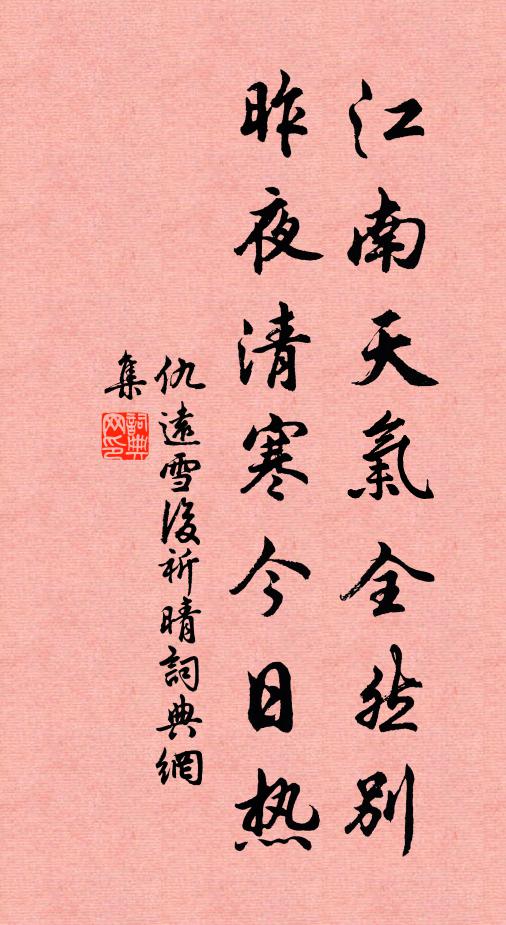 江南天氣全然別
昨夜清寒今日热
仇遠雪後祈晴詞典網
集
詞典网印